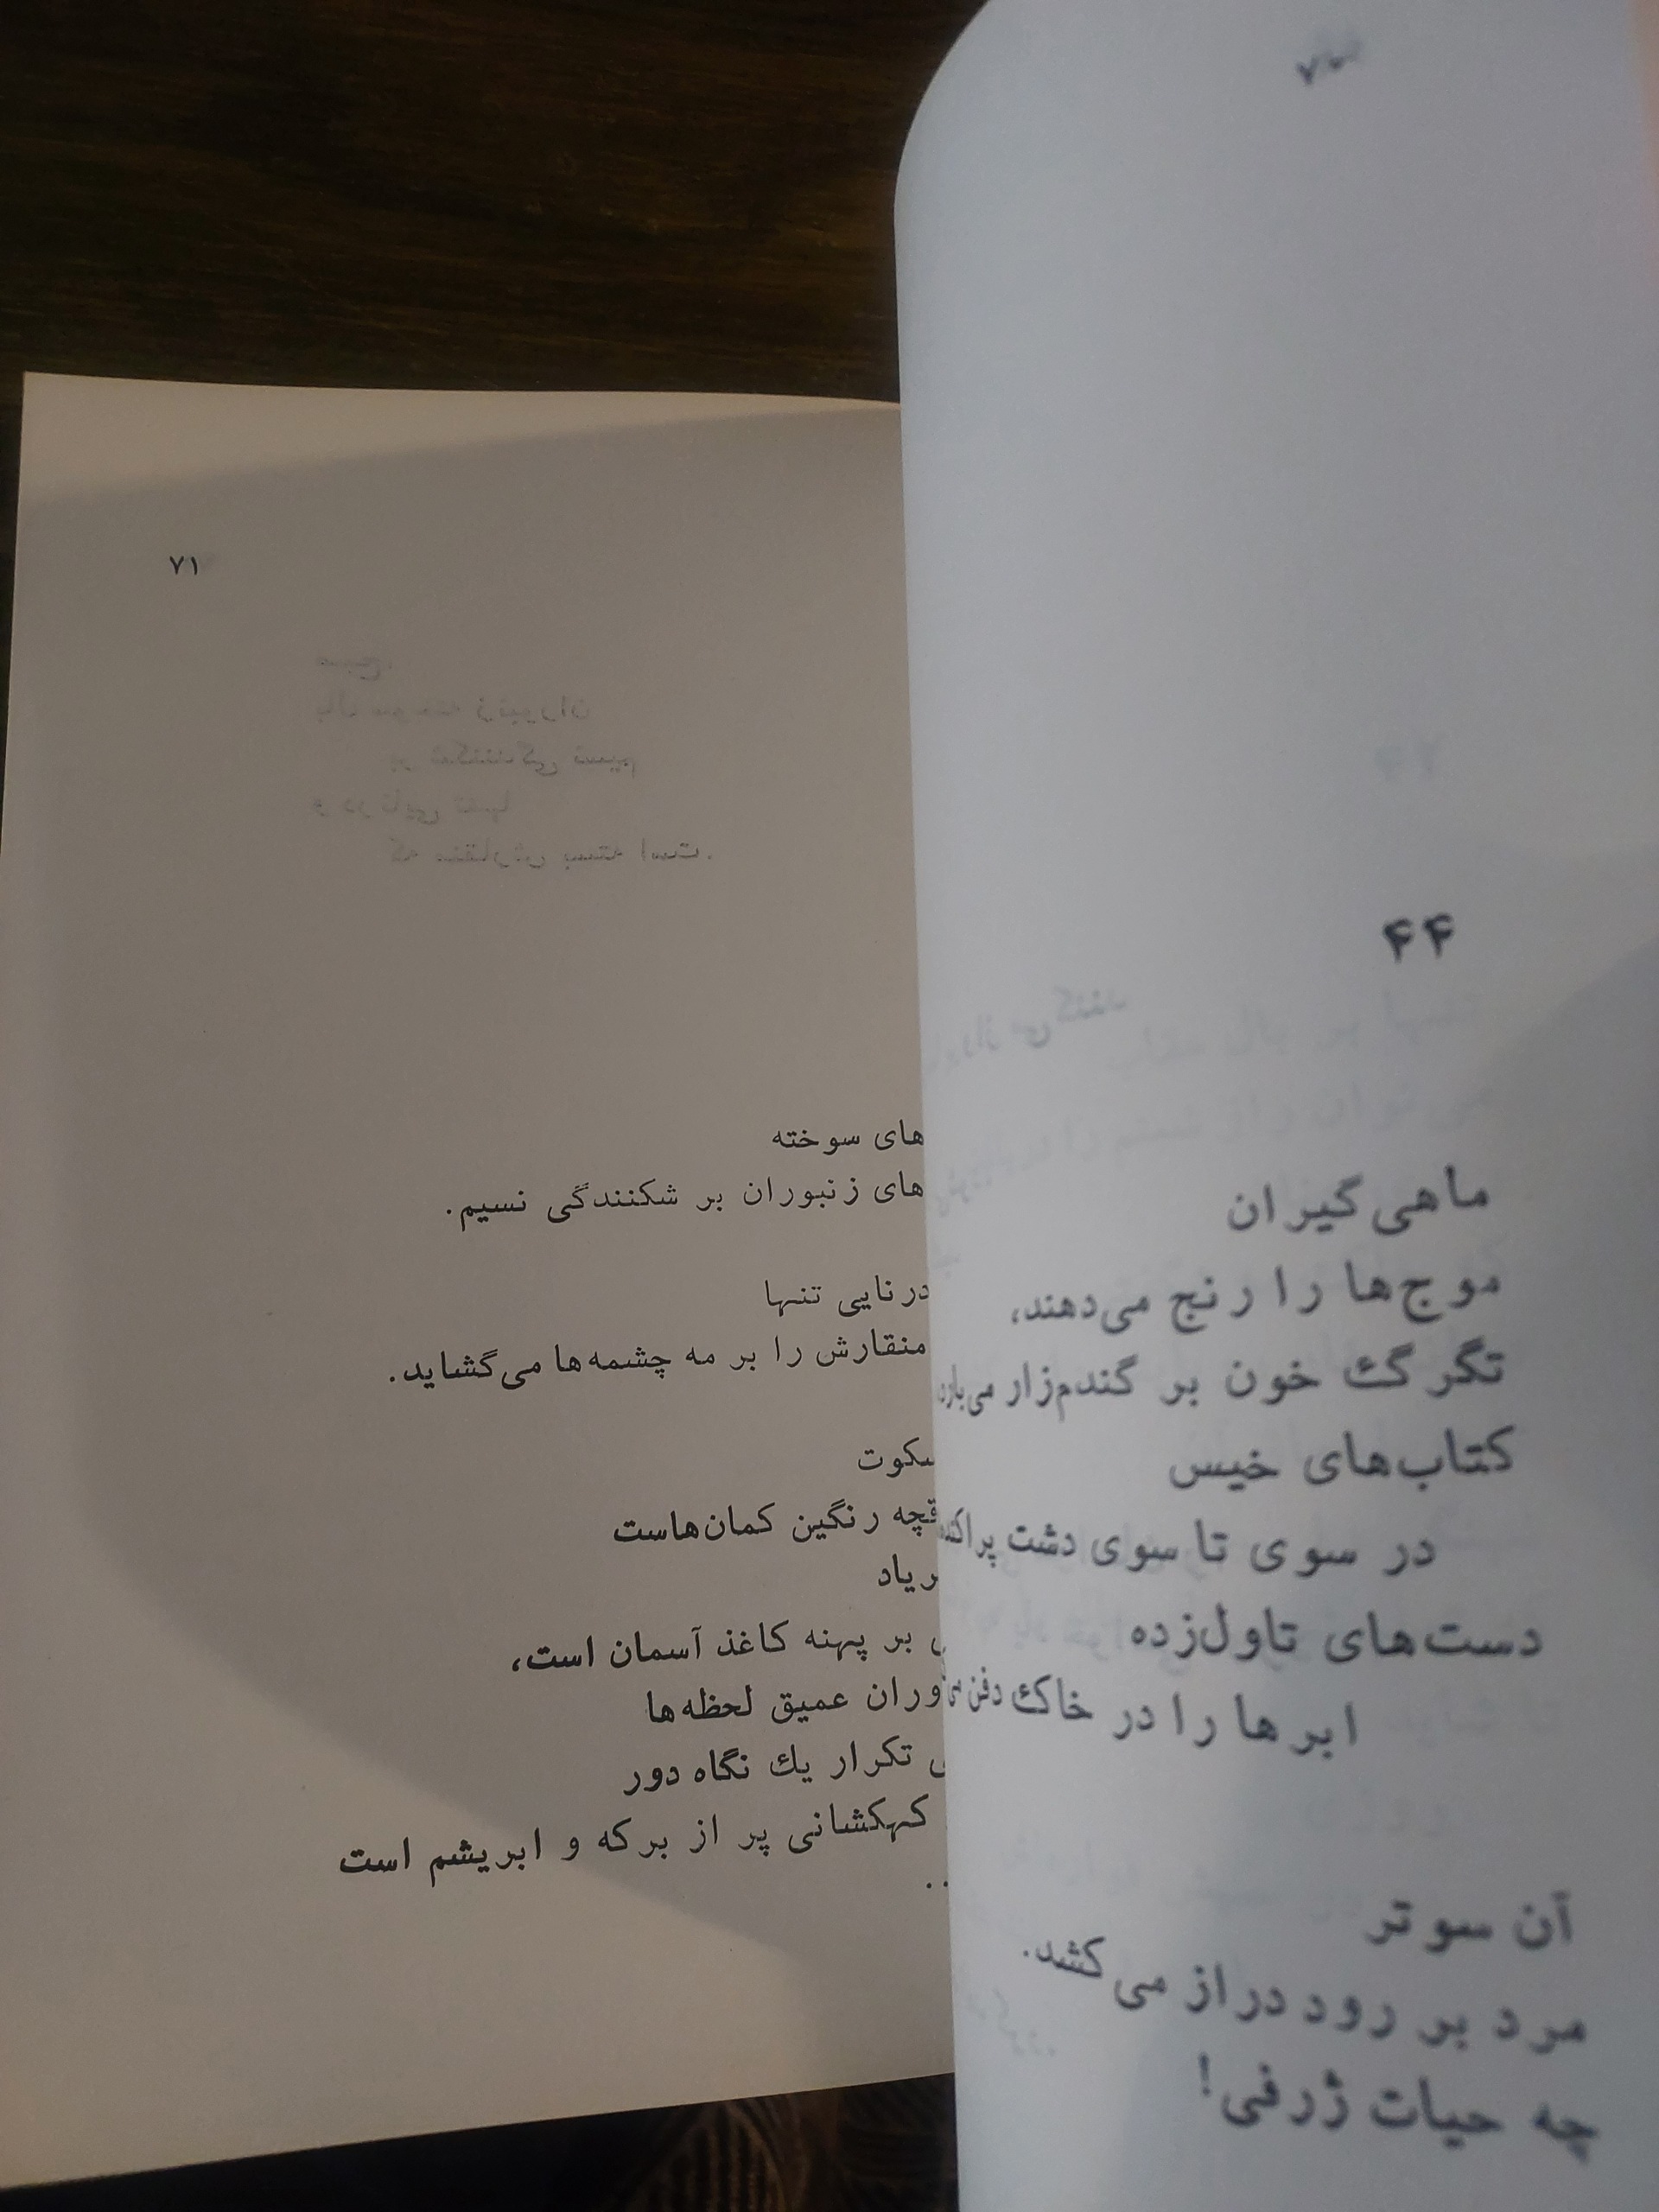 ۴۴
ماهی‌گیران
موج‌ها را رنج می‌دهند،
تگرگ خون بر گندم‌زار می‌بارد
کتاب‌های خیس
در سوی تا سوی دشت
دست‌های تاول‌زده
ابرها را در خاک دفن
آن سوتر
مرد بر رود دراز می‌کشد.
چه حیات ژرفی!
۷۱
های سوخته
های زنبوران بر شکنندگی نسیم.
درنایی تنها
منقارش را بر مه چشمه‌ها می‌گشاید.
سکوت
قچه رنگین کمان‌هاست
ریاد
بر پهنه کاغذ آسمان است،
وران عمیق لحظه‌ها
تکرار یك نگاه دور
کهکشانی پر از برکه و ابریشم است
..